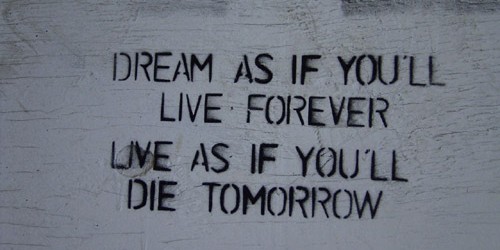 DREAM AS IF YOU'LL
LIVE FOREVER
LIVE AS IF YOU'LL
DIE TOMORROW